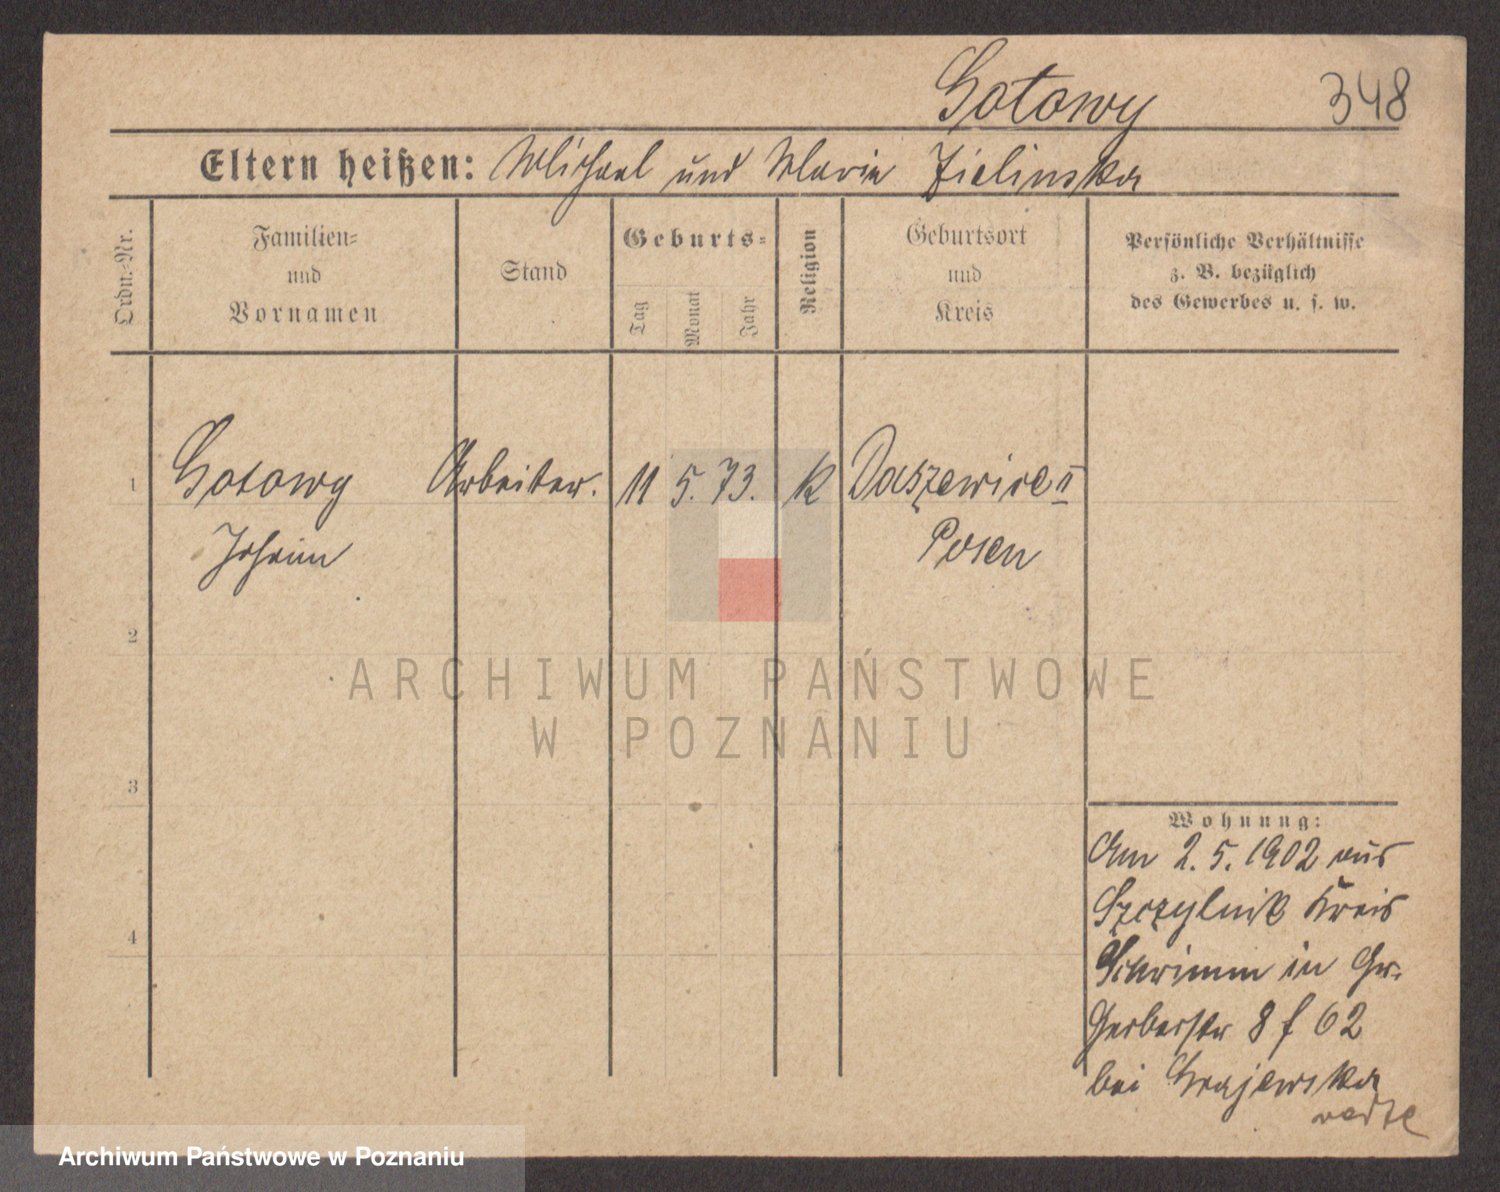 Gotowy 348
Eltern heißen: Michael und Marie Zielinska
Ordn.-Nr.
Familien-
und
Vornamen
Stand
Geburts-
Tag
Monat
Jahr
Religion
Geburtsort
und
Kreis
Persönliche Verhältnisse
z. B. bezüglich
des Gewerbes u. s. w.
1 Gotowy Arbeiter. 11 5. 73. K Daszewice II
Johann Posen
2
3
4
Wohnung:
Am 2. 5. 1902 aus
Szczytnik Kreis
Schrimm in Gr.
Gerberstr 8 f 62
bei Grajewska
ARCHIWUM PAŃSTWOWE
W POZNANIU
Archiwum Państwowe w Poznaniu